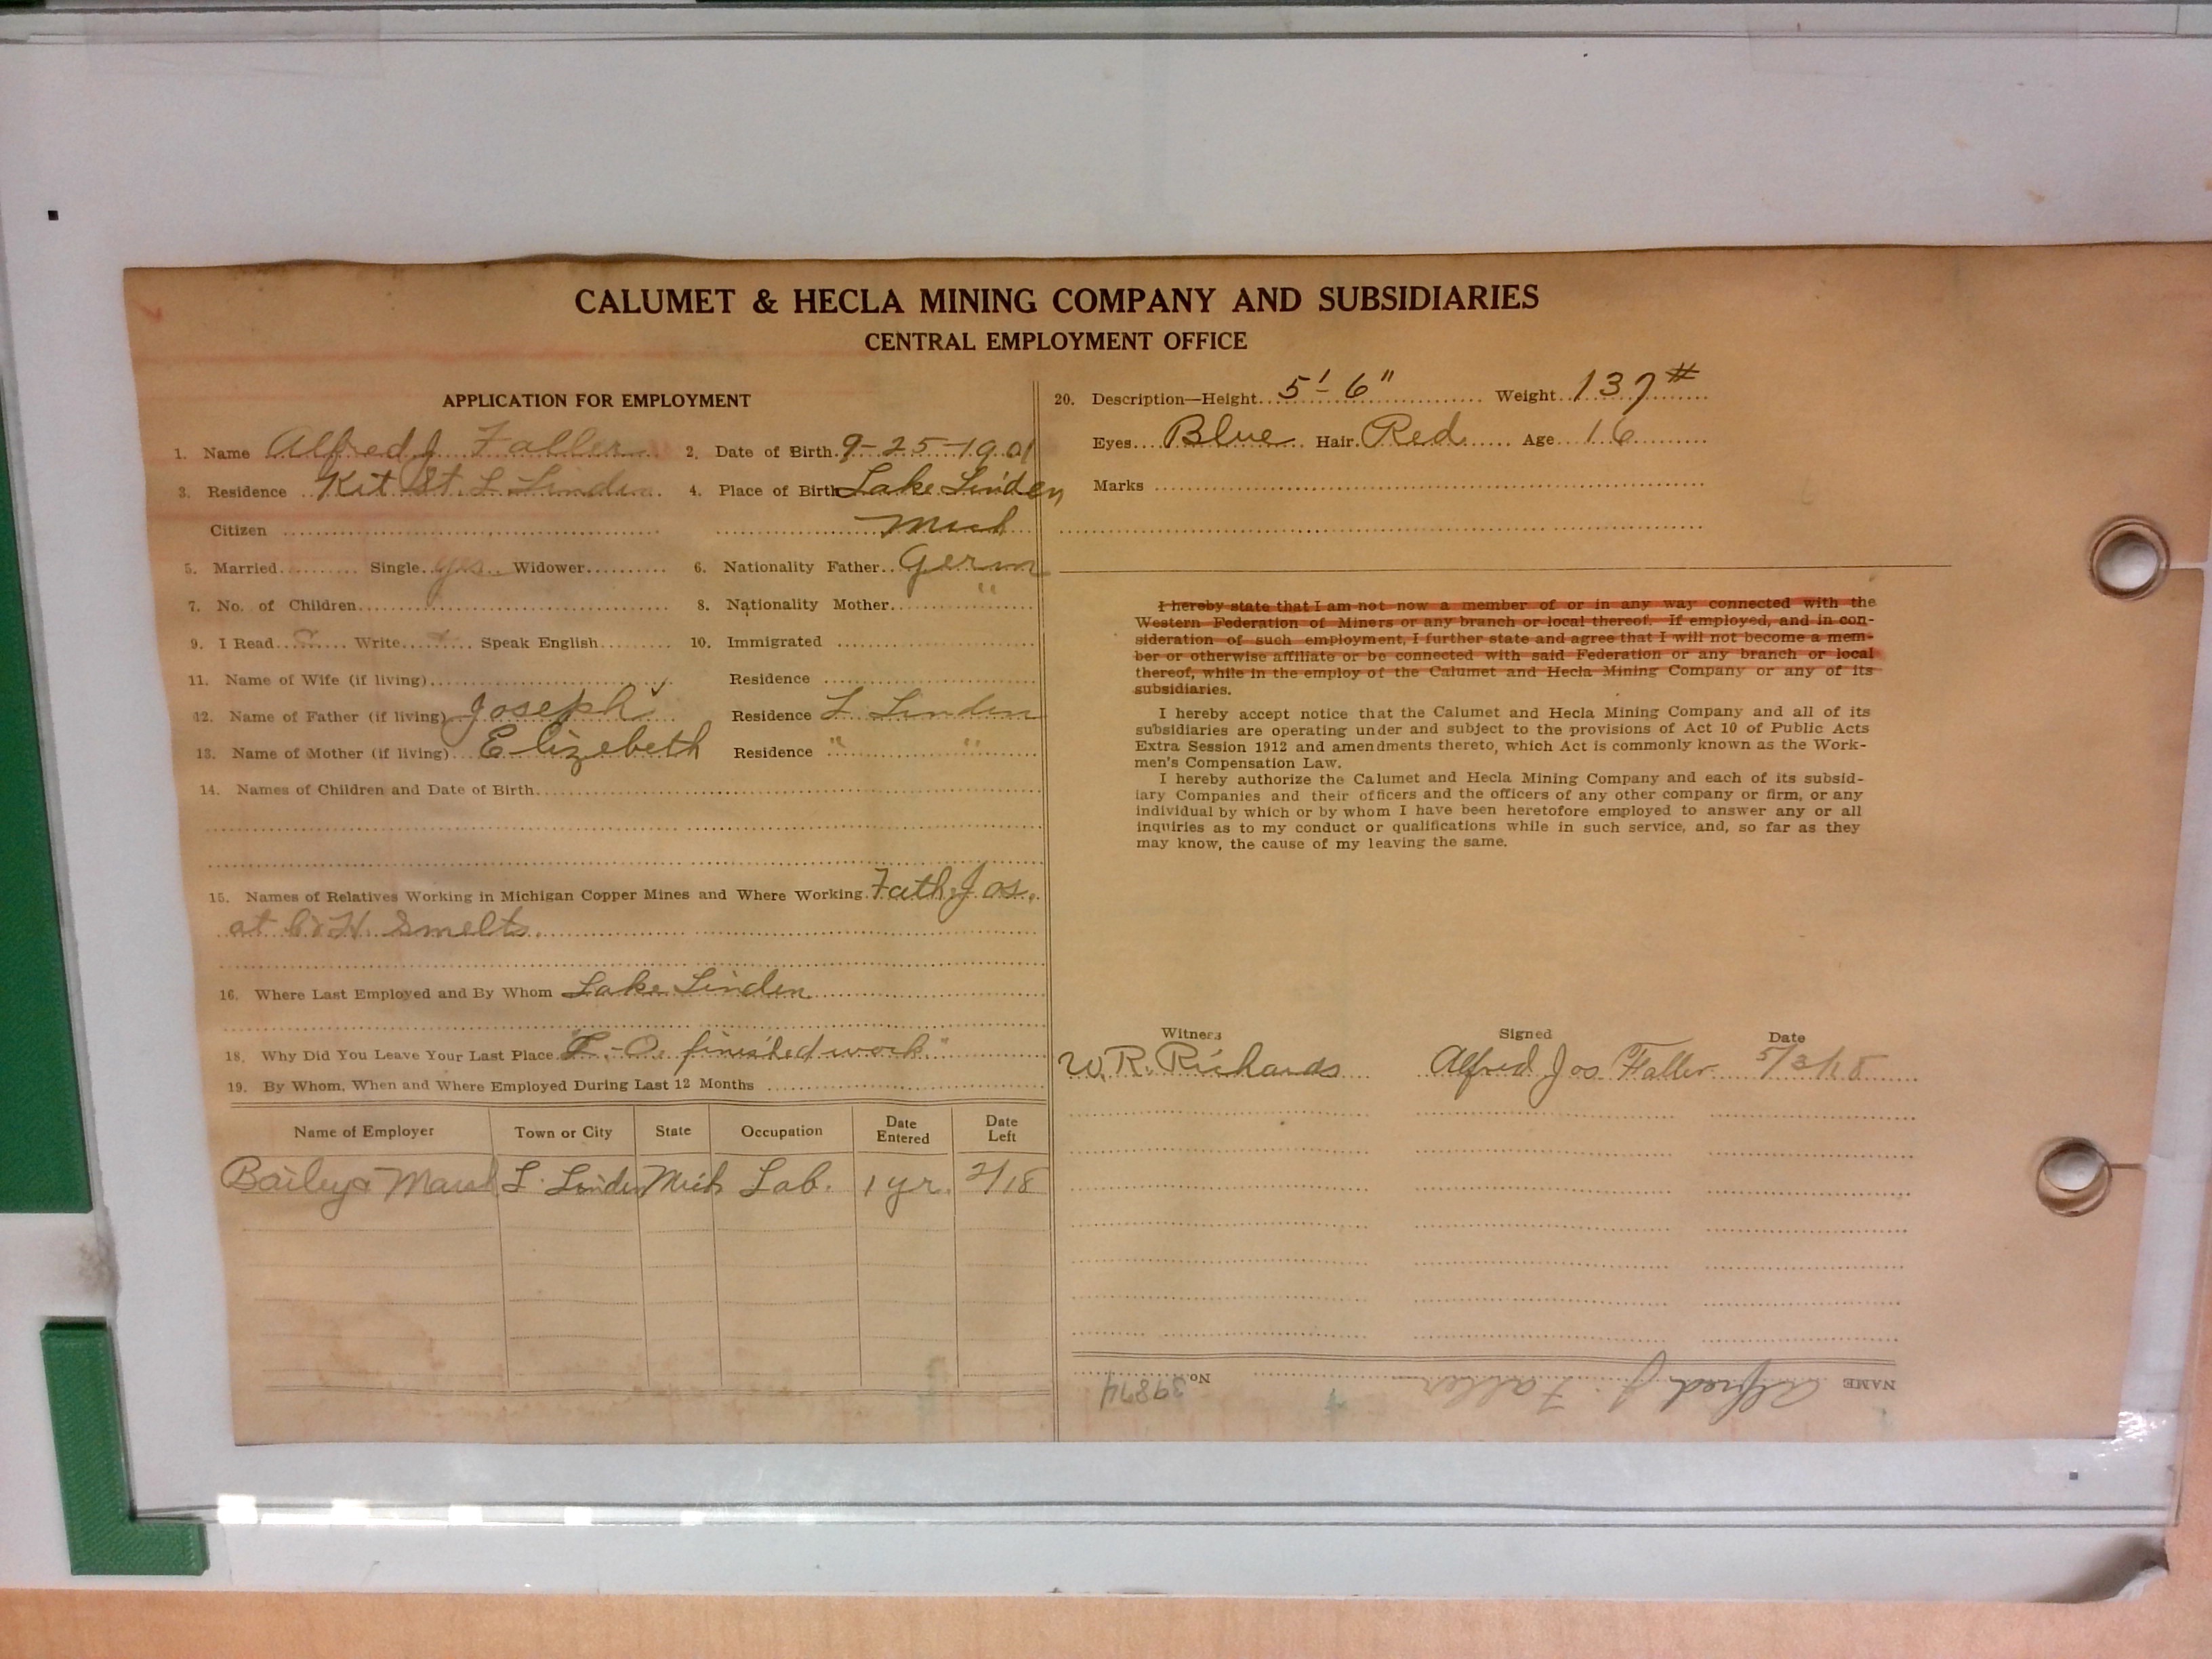 CALUMET & HECLA MINING COMPANY AND SUBSIDIARIES
CENTRAL EMPLOYMENT OFFICE
APPLICATION FOR EMPLOYMENT
1. Name Alfred J. Faller 2. Date of Birth 9-25-1901
3. Residence Kit St. L. Linden 4. Place of Birth Lake Linden
Citizen Mich
5. Married Single yes Widower 6. Nationality Father Germ
7. No. of Children 8. Nationality Mother "
9. I Read Write Speak English 10. Immigrated
11. Name of Wife (if living) Residence
12. Name of Father (if living) Joseph Residence L Linden
13. Name of Mother (if living) Elizebeth Residence " "
14. Names of Children and Date of Birth
15. Names of Relatives Working in Michigan Copper Mines and Where Working Fath. Jos.
at C&H. Smelts.
16. Where Last Employed and By Whom Lake Linden
18. Why Did You Leave Your Last Place finished work"
19. By Whom, When and Where Employed During Last 12 Months
Name of Employer Town or City State Occupation Date Entered Date Left
Bailey & L. Linden Mich Lab. 1 yr. 2/18
20. Description—Height 5'-6" Weight 137#
Eyes Blue Hair Red Age 16
Marks
I hereby state that I am not now a member of or in any way connected with the
Western Federation of Miners or any branch or local thereof. If employed, and in con-
sideration of such employment, I further state and agree that I will not become a mem-
ber or otherwise affiliate or be connected with said Federation or any branch or local
thereof, while in the employ of the Calumet and Hecla Mining Company or any of its
subsidiaries.
I hereby accept notice that the Calumet and Hecla Mining Company and all of its
subsidiaries are operating under and subject to the provisions of Act 10 of Public Acts
Extra Session 1912 and amendments thereto, which Act is commonly known as the Work-
men's Compensation Law.
I hereby authorize the Calumet and Hecla Mining Company and each of its subsid-
iary Companies and their officers and the officers of any other company or firm, or any
individual by which or by whom I have been heretofore employed to answer any or all
inquiries as to my conduct or qualifications while in such service, and, so far as they
may know, the cause of my leaving the same.
Witness Signed Date
W. R. Richards Alfred Jos Faller 5/3/18
NAME Alfred J. Faller No. 39874